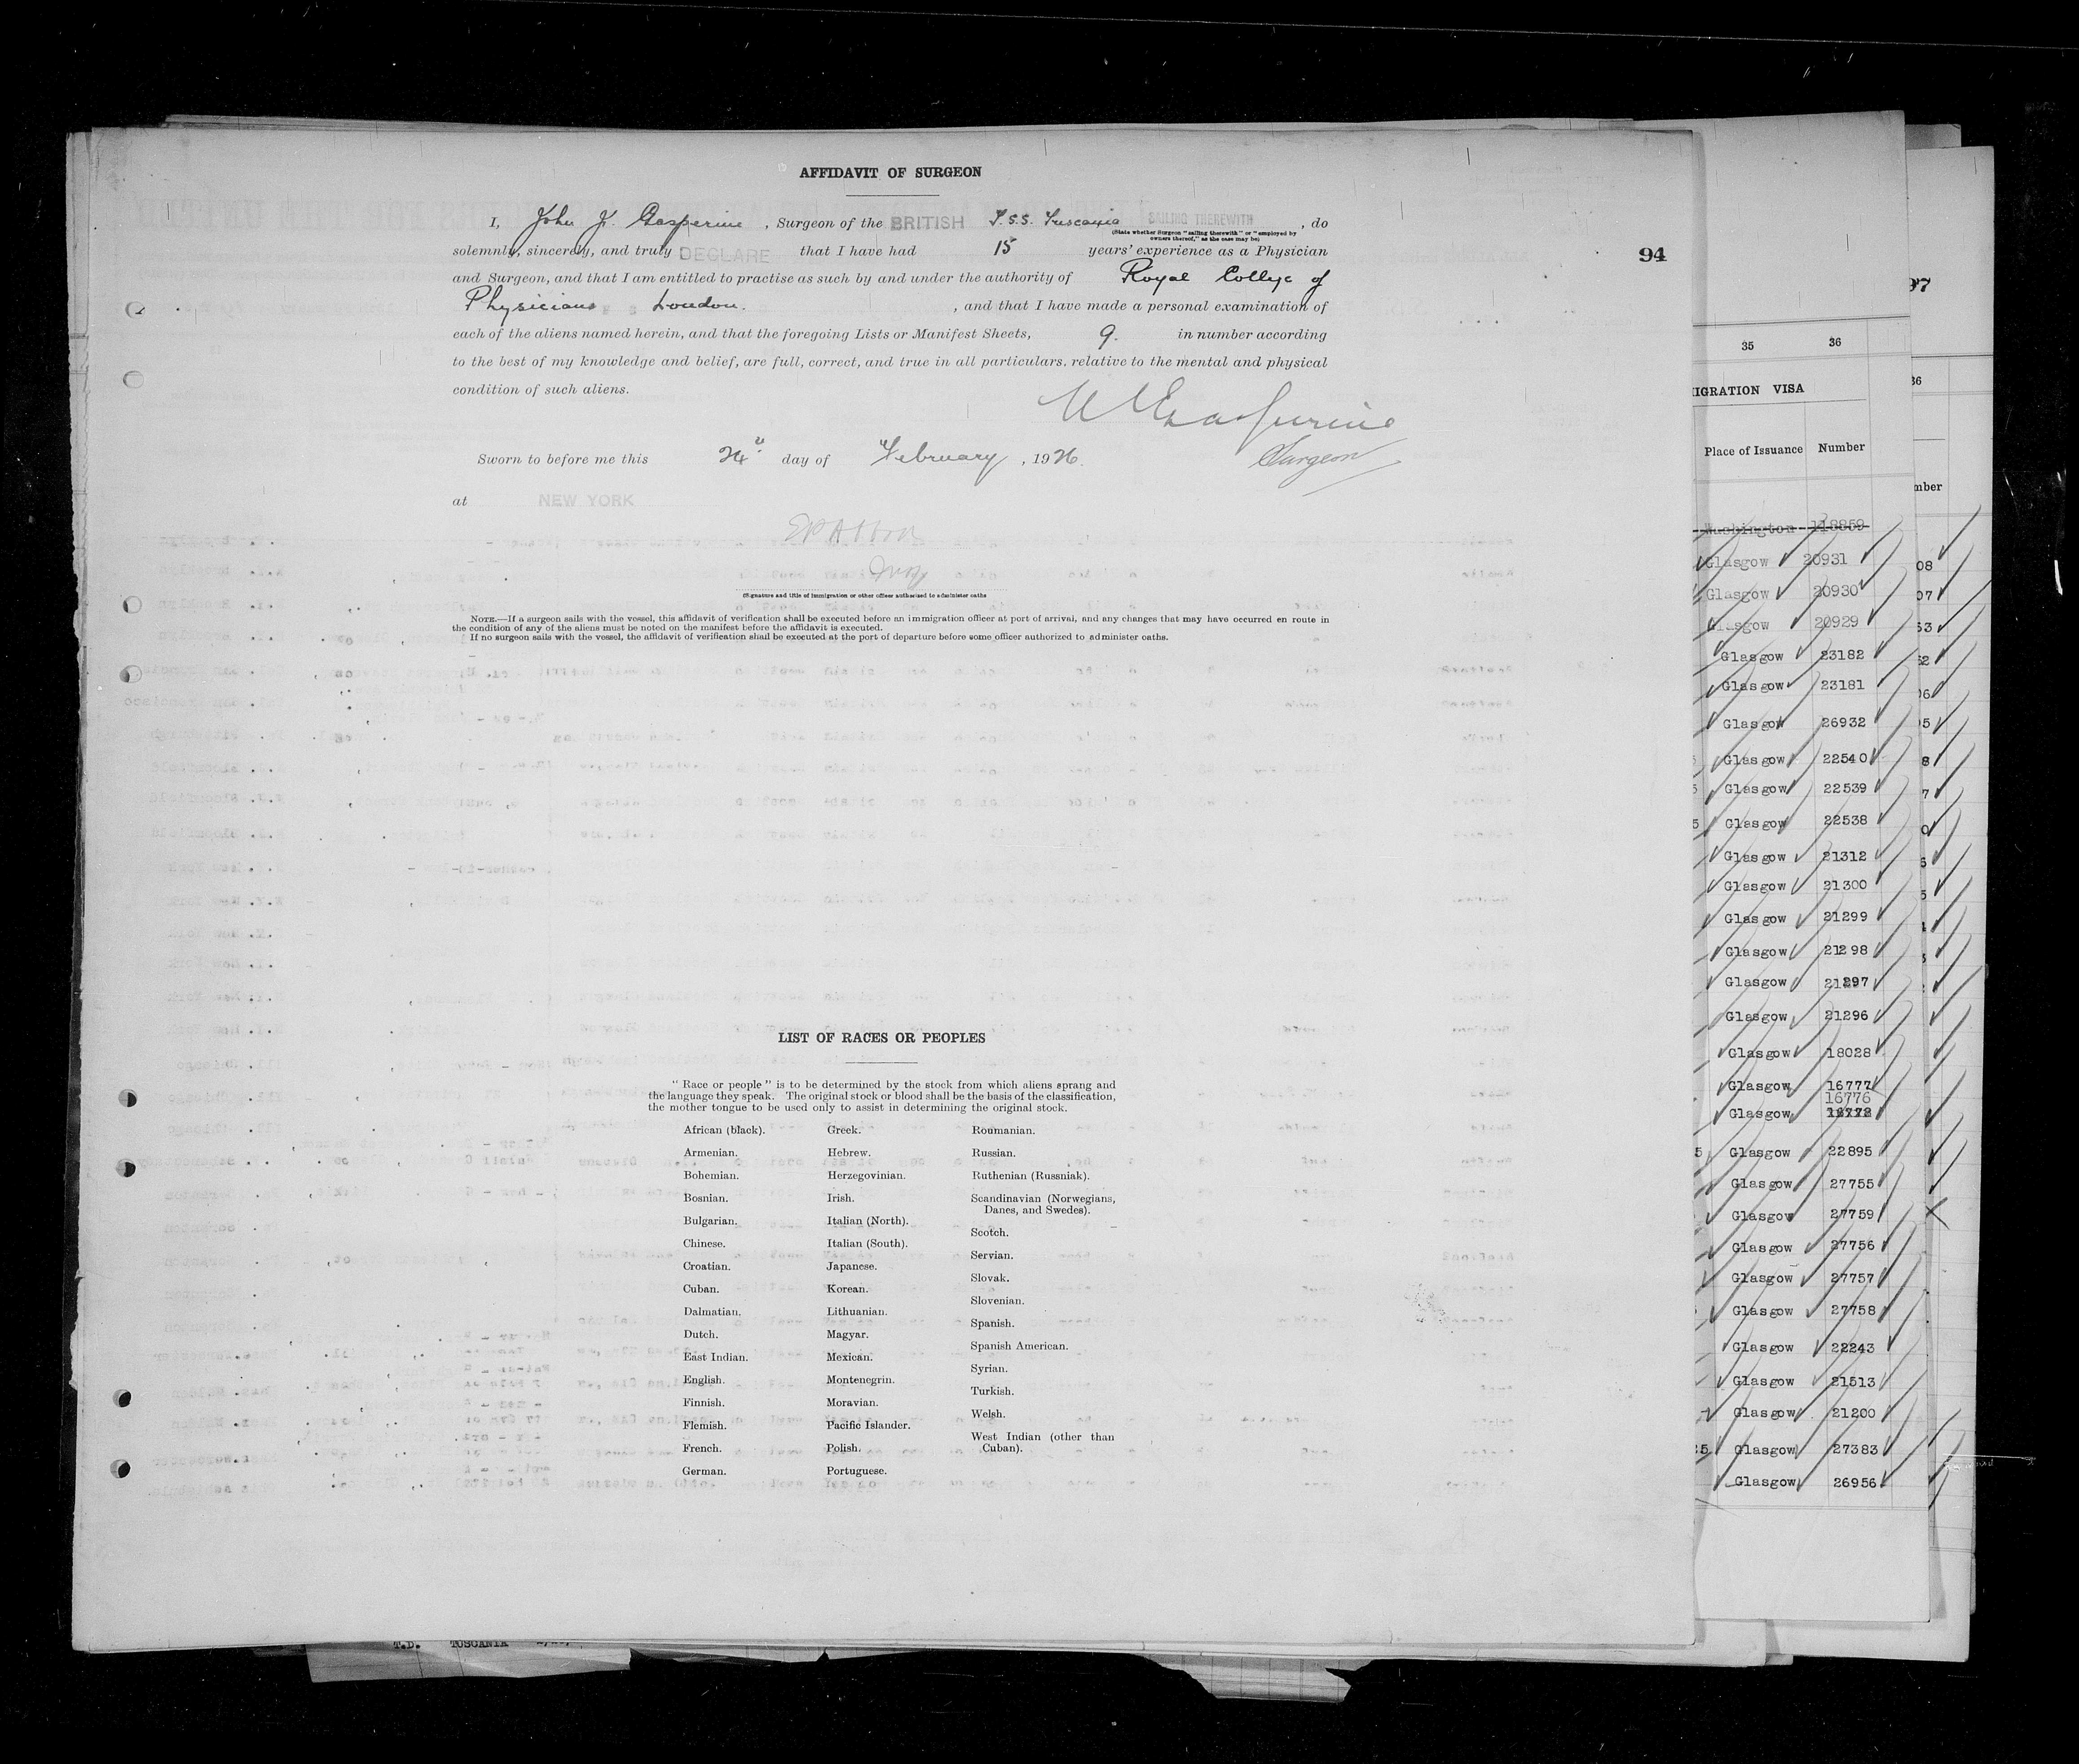 AFFIDAVIT OF SURGEON
I, John J. Gasperine, Surgeon of the BRITISH T.S.S. Tuscania SAILING THEREWITH, do
(State whether Surgeon "sailing therewith" or "employed by
owners thereof," as the case may be)
solemnly, sincerely, and truly DECLARE that I have had 15 years' experience as a Physician
94
and Surgeon, and that I am entitled to practise as such by and under the authority of Royal College of
Physicians London., and that I have made a personal examination of
each of the aliens named herein, and that the foregoing Lists or Manifest Sheets, 9. in number according
to the best of my knowledge and belief, are full, correct, and true in all particulars, relative to the mental and physical
condition of such aliens.
Surgeon
Sworn to before me this 24" day of February, 1926.
at NEW YORK
(Signature and title of immigration or other officer authorized to administer oaths
NOTE.—If a surgeon sails with the vessel, this affidavit of verification shall be executed before an immigration officer at port of arrival, and any changes that may have occurred en route in
the condition of any of the aliens must be noted on the manifest before the affidavit is executed.
If no surgeon sails with the vessel, the affidavit of verification shall be executed at the port of departure before some officer authorized to administer oaths.
LIST OF RACES OR PEOPLES
"Race or people" is to be determined by the stock from which aliens sprang and
the language they speak. The original stock or blood shall be the basis of the classification,
the mother tongue to be used only to assist in determining the original stock.
African (black).
Armenian.
Bohemian.
Bosnian.
Bulgarian.
Chinese.
Croatian.
Cuban.
Dalmatian.
Dutch.
East Indian.
English.
Finnish.
Flemish.
French.
German.
Greek.
Hebrew.
Herzegovinian.
Irish.
Italian (North).
Italian (South).
Japanese.
Korean.
Lithuanian.
Magyar.
Mexican.
Montenegrin.
Moravian.
Pacific Islander.
Polish.
Portuguese.
Roumanian.
Russian.
Ruthenian (Russniak).
Scandinavian (Norwegians,
Danes, and Swedes).
Scotch.
Servian.
Slovak.
Slovenian.
Spanish.
Spanish American.
Syrian.
Turkish.
Welsh.
West Indian (other than
Cuban).
T.D. TUSCANIA
35 36
IGRATION VISA
Place of Issuance Number
Washington 118859
Glasgow 20931
Glasgow 20930
Glasgow 20929
Glasgow 23182
Glasgow 23181
Glasgow 26932
Glasgow 22540
Glasgow 22539
Glasgow 22538
Glasgow 21312
Glasgow 21300
Glasgow 21299
Glasgow 21298
Glasgow 21297
Glasgow 21296
Glasgow 18028
Glasgow 16777
16776
Glasgow
Glasgow 22895
Glasgow 27755
Glasgow 27759
Glasgow 27756
Glasgow 27757
Glasgow 27758
Glasgow 22243
Glasgow 21513
Glasgow 21200
Glasgow 27383
Glasgow 26956
97
36
mber
08
07
53
52
06
05
8
7
0